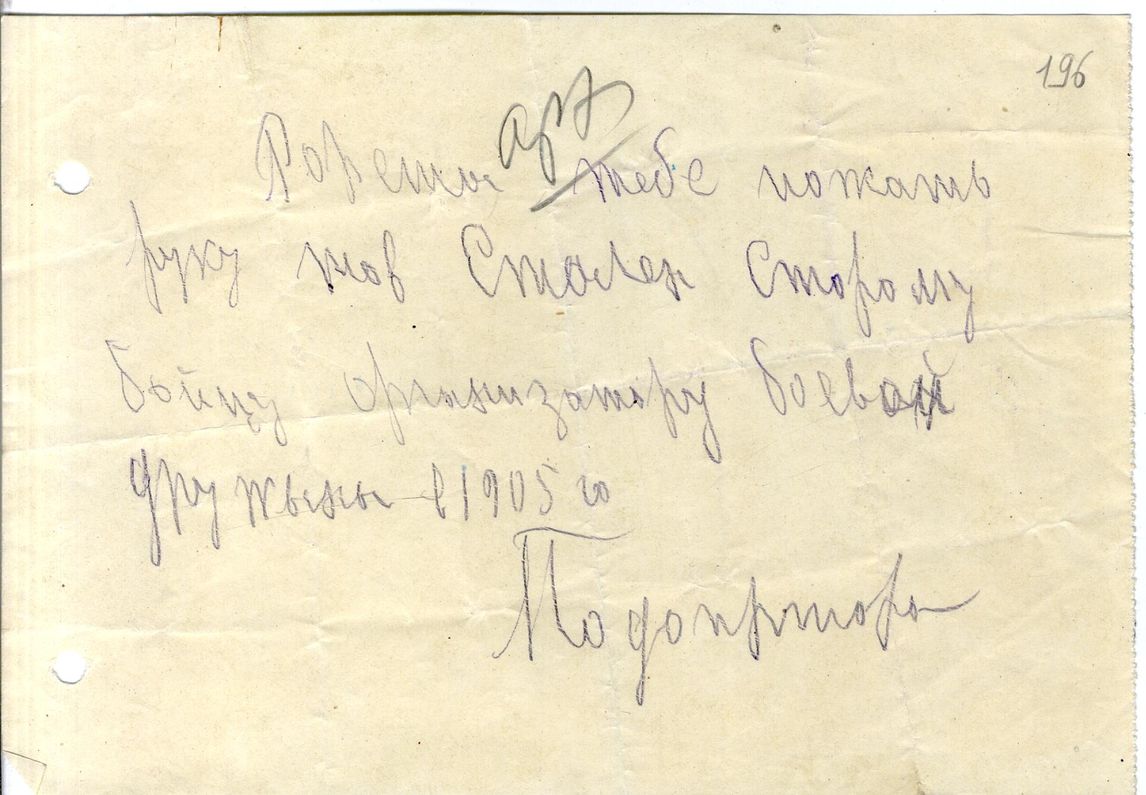 196
арх
тебе пожать
руку тов Стален Сторому
бойцу организатору боевой
дружыны в 1905 го
Подопргтора